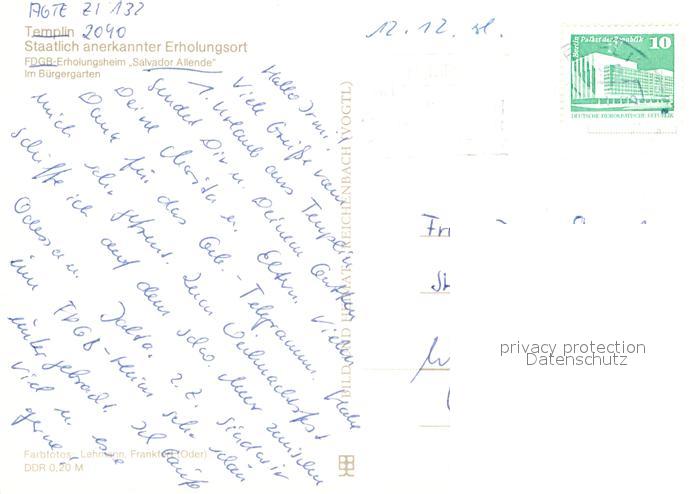 AGTE ZI 132
Templin 2090
Staatlich anerkannter Erholungsort
FDGB-Erholungsheim „Salvador Allende"
Im Bürgergarten
12. 12. 81.
Berlin Palast der Republik 10
DEUTSCHE DEMOKRATISCHE REPUBLIK
Hallo Irmi!
Viele Grüße vom
1. Urlaub aus Templin
sendet Dir u. Deinem
Deine u. Eltern. Vielen
Dank für das Geb.-Telegramm. Habe
mich sehr gefreut. Zum Weihnachtsfest
schiffe ich auf dem Meer zwischen
Odessa u. Jalta. z. Z. sind wir
im FDGB-Heim sehr schön
untergebracht. Ich laufe
viel u. esse
gerne!
BILD UND HEIMAT REICHENBACH (VOGTL)
Fr
St
privacy protection
Datenschutz
Farbfotos: Lehmann, Frankfurt (Oder)
DDR 0,20 M